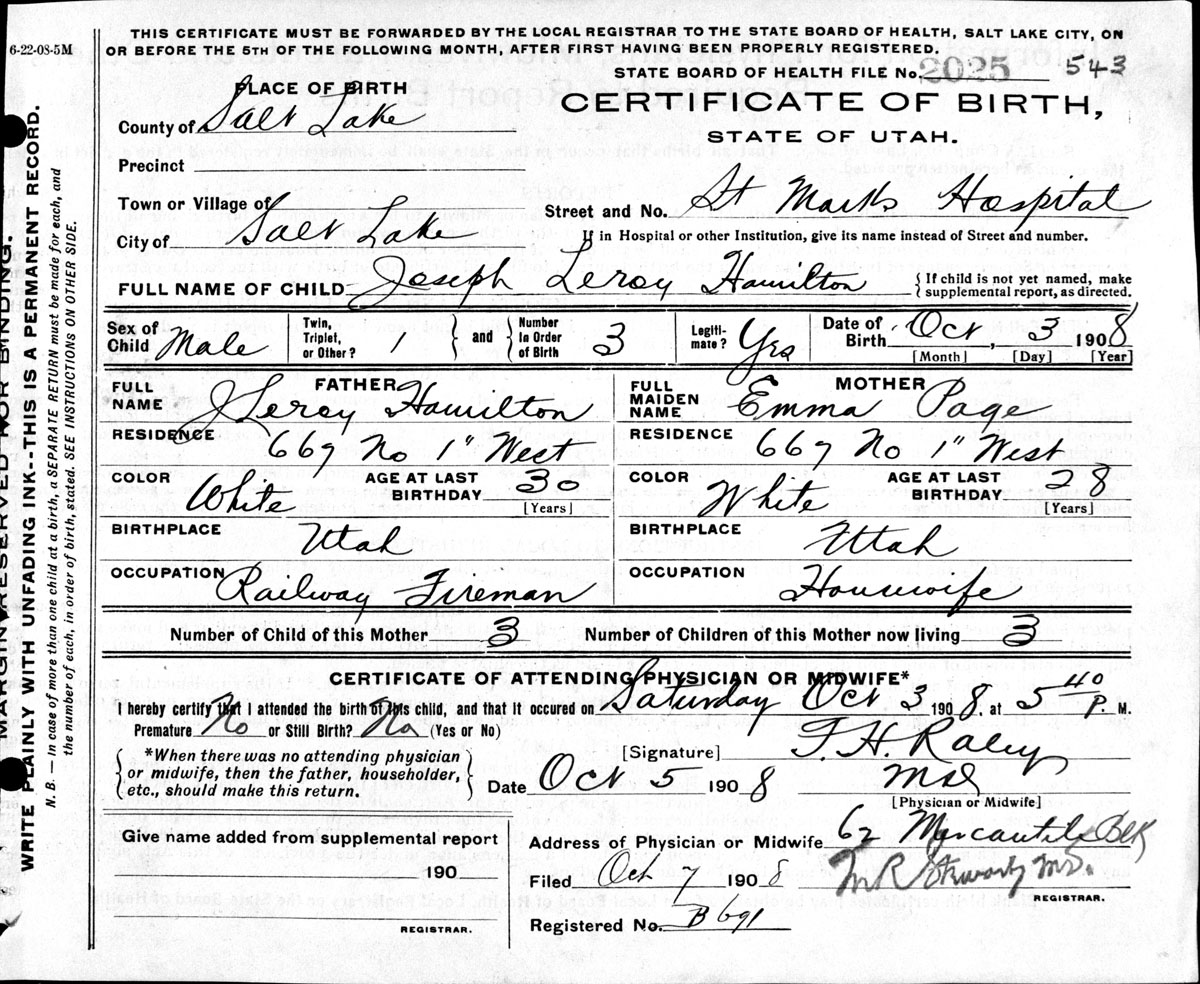 THIS CERTIFICATE MUST BE FORWARDED BY THE LOCAL REGISTRAR TO THE STATE BOARD OF HEALTH, SALT LAKE CITY, ON
6-22-08-5M
OR BEFORE THE 5TH OF THE FOLLOWING MONTH, AFTER FIRST HAVING BEEN PROPERLY REGISTERED.
STATE BOARD OF HEALTH FILE No. 2025 543
PLACE OF BIRTH
CERTIFICATE OF BIRTH,
County of Salt Lake
STATE OF UTAH.
Precinct
Town or Village of
Street and No. St Marks Hospital
City of Salt Lake
If in Hospital or other Institution, give its name instead of Street and number.
FULL NAME OF CHILD Joseph Leroy Hamilton { If child is not yet named, make supplemental report, as directed.
Sex of Child Male
Twin, Triplet, or Other? 1 } and { Number in Order of Birth 3
Legiti-mate? Yes
Date of Birth Oct, 3 1908
[Month] [Day] [Year]
FATHER
FULL NAME J Leroy Hamilton
MOTHER
FULL MAIDEN NAME Emma Page
RESIDENCE 667 No 1" West
RESIDENCE 667 No 1" West
COLOR White AGE AT LAST BIRTHDAY 30 [Years]
COLOR White AGE AT LAST BIRTHDAY 28 [Years]
BIRTHPLACE Utah
BIRTHPLACE Utah
OCCUPATION Railway Fireman
OCCUPATION Housewife
Number of Child of this Mother 3 Number of Children of this Mother now living 3
CERTIFICATE OF ATTENDING PHYSICIAN OR MIDWIFE*
I hereby certify that I attended the birth of this child, and that it occured on Saturday Oct 3 1908, at 5 40 P. M.
Premature No or Still Birth? No (Yes or No)
*When there was no attending physician
or midwife, then the father, householder,
etc., should make this return.
[Signature] T H Raley
Date Oct 5 1908 MD
[Physician or Midwife]
Give name added from supplemental report
190
REGISTRAR.
Address of Physician or Midwife 62 Mercantile Blk
Filed Oct 7 1908 M.D.
REGISTRAR.
Registered No. B 691
MARGIN RESERVED FOR BINDING.
WRITE PLAINLY WITH UNFADING INK--THIS IS A PERMANENT RECORD.
N. B. — In case of more than one child at a birth, a SEPARATE RETURN must be made for each, and
the number of each, in order of birth, stated. SEE INSTRUCTIONS ON OTHER SIDE.